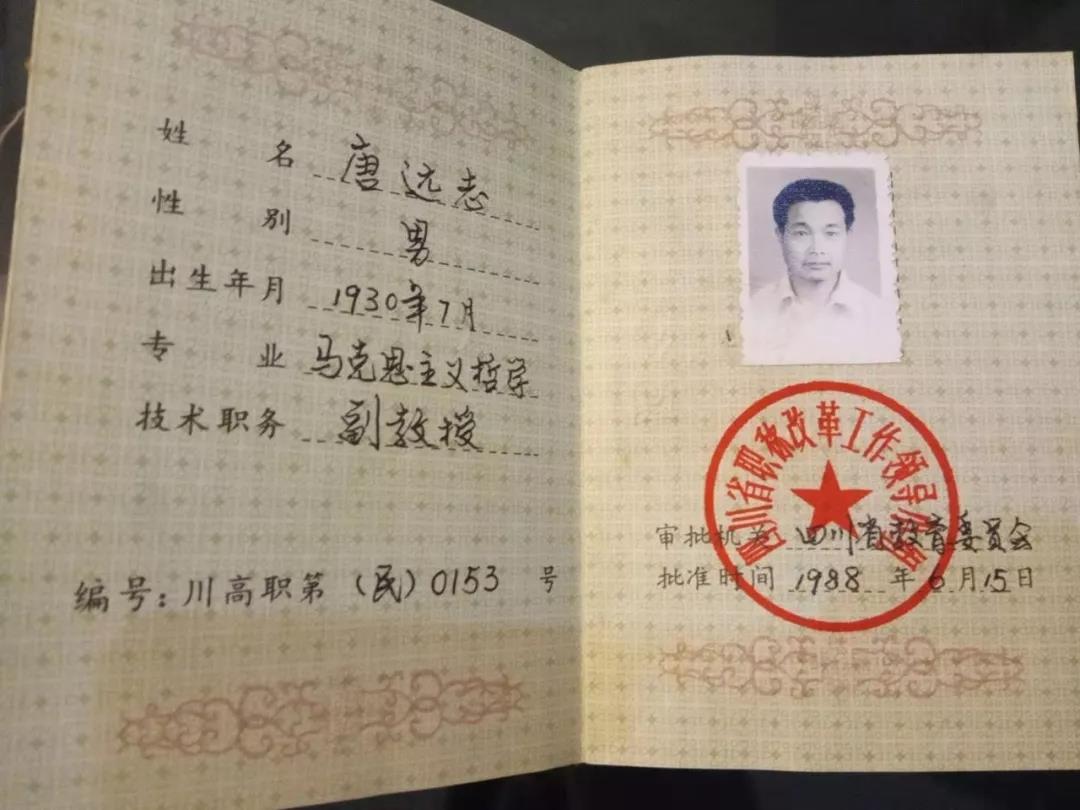 姓 名 唐远志
性 别 男
出生年月 1930年7月
专 业 马克思主义哲学
技术职务 副教授
编号：川高职第（民）0153 号
四川省职称改革工作领导
审批机关 四川省教育委员会
批准时间 1988 年 6 月 15 日